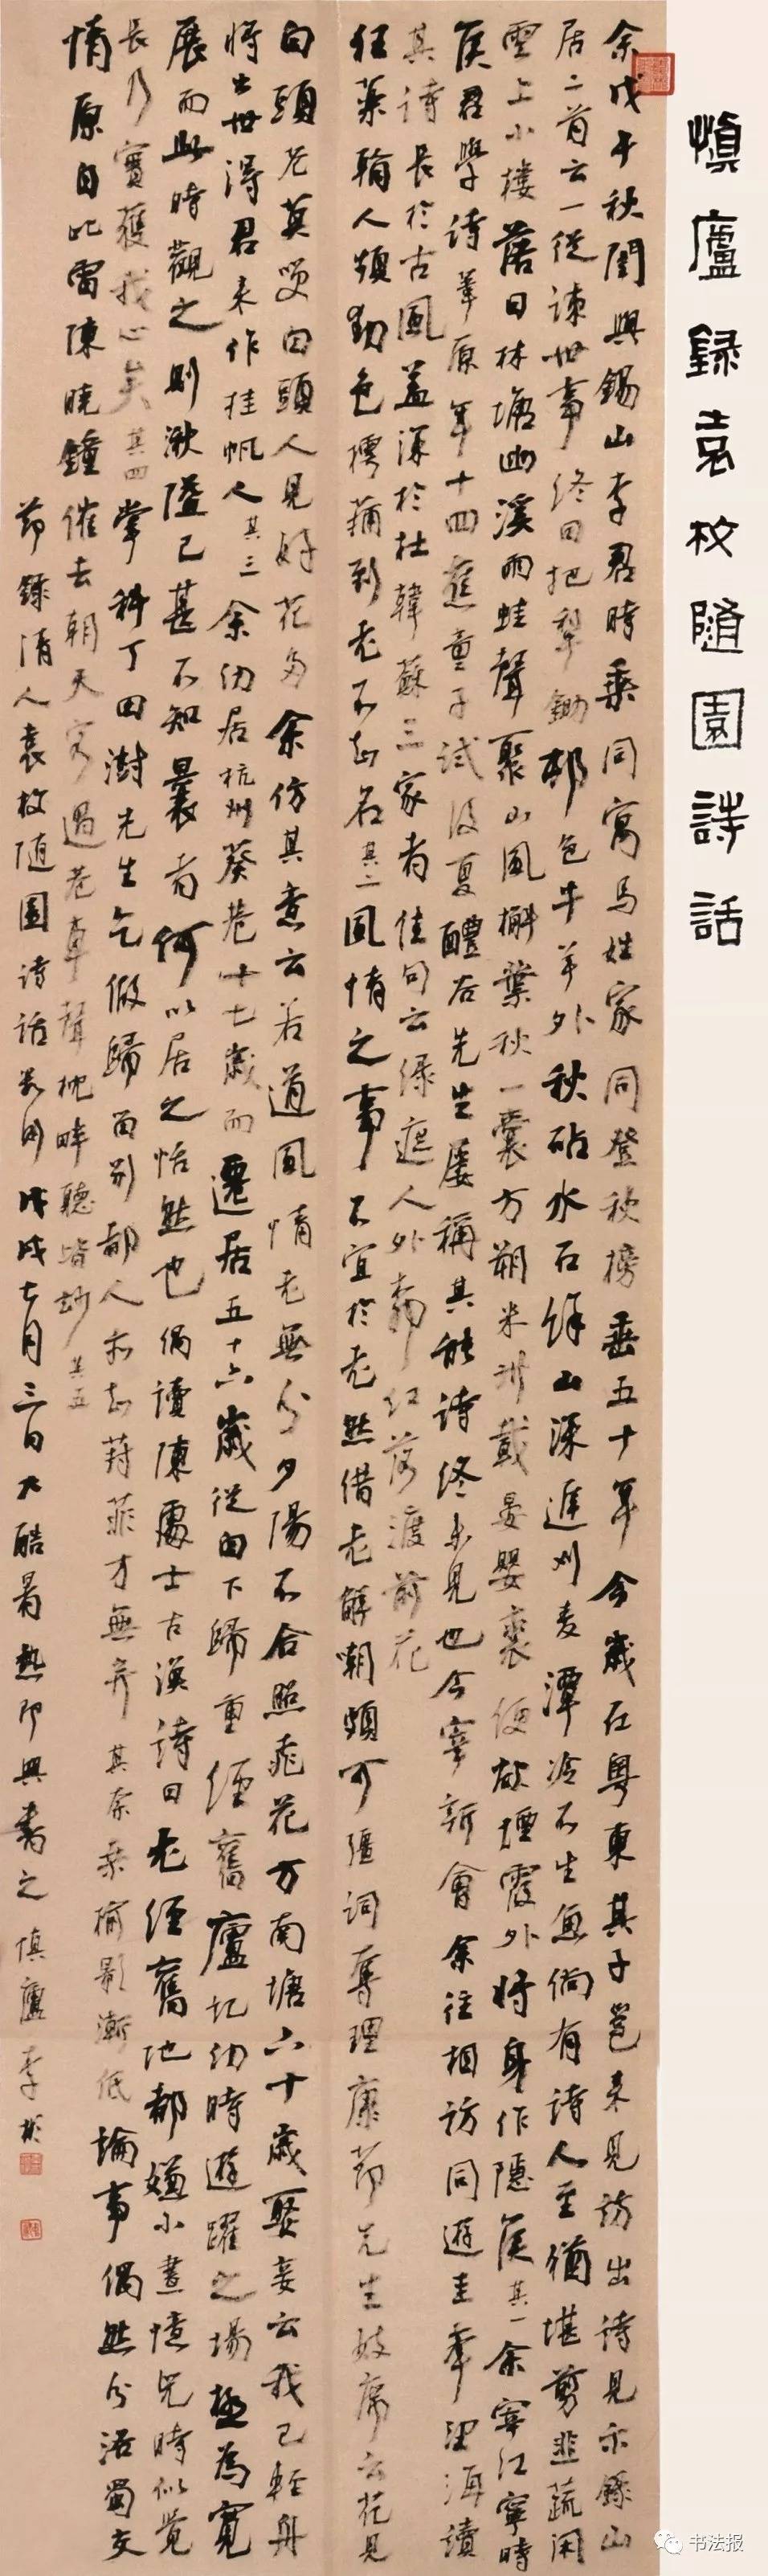 慎廬錄袁枚隨園詩話
余戊午秋闈與錫山李君時乘同寓馬姓家同登秋榜垂五十年今歲在粵東其子邕來見訪出詩見示錄山
居二首云一從諫世事終日把犁鋤邨色牛羊外秋砧水石餘山深遲刈麦潭冷不生魚倘有詩人至猶堪剪韭蔬閑
雲上小樓落日林塘幽溪雨蛙聲聚山風槲葉秋一囊方朔米卅載晏嬰裘便欲煙霞外將身作隱侯其一余宰江寧時
侯君學詩葦原年十四應童子試後夏醴谷先生屢稱其能詩終未見也今宰新會余往相訪同遊圭峯望海讀
其詩長於古風蓋深於杜韓蘇三家者佳句云緑遮人外柳红落渡前花
任藥翰人頻動色樗蒱到老不知名其二風情之事不宜於老然借老解嘲頗可强词奪理康節先生妓席云花見
白頭花莫笑白頭人見好花多余仿其意云若道風情老無分夕陽不合照桃花方南塘六十歲娶妾云我已輕舟
將出世得君來作挂帆人其三余幼居杭州葵巷十七歲而遷居五十六歲從白下歸重經舊廬記幼時遊躍之場極為寬
展而此時觀之則湫隘已甚不知曩者何以居之恬然也偶讀陳處士古漁詩曰老經舊地都嫌小晝憶兒時似覺
長乃實獲我心矣其四掌科丁田澍先生乞假歸留别都人亦知葑菲才無弃其奈桑榆影漸低論事偶然分洛蜀交
情原自比雷陳曉鐘催去朝天客過巷車聲枕畔聽皆妙其五
節錄清人袁枚随園诗话戊戌七月三日大酷暑熱即興書之慎廬李彬
书法报